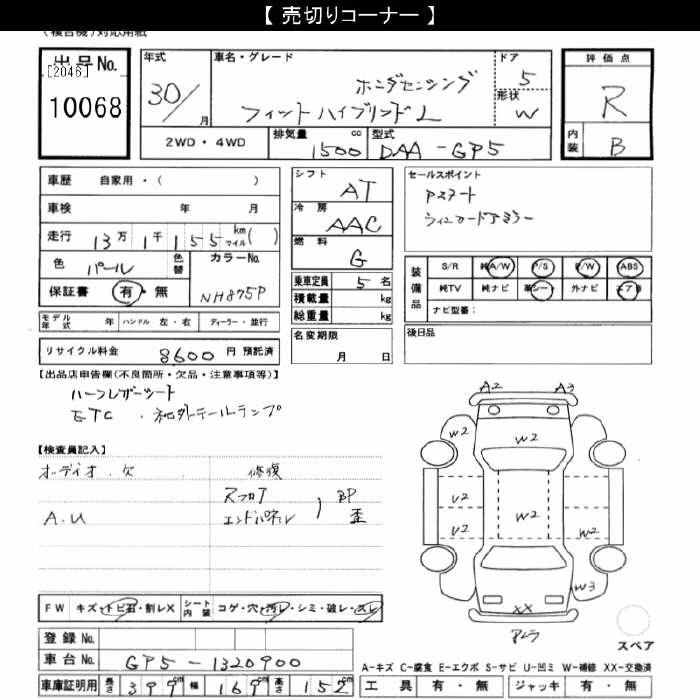 【 売切りコーナー 】
(複合機)対応用紙
出品No.
[2046]
10068
年式
30/月
車名・グレード
ホンダセンシング
フィットハイブリッド L
ドア
5
形状
W
評価点
R
内装
B
2WD・4WD
排気量 1500 cc
型式 DAA-GP5
車歴 自家用・( )
車検 年 月
走行 13万1千155 km マイル( )
色 パール
色替
カラーNo.
NH875P
保証書 有・無
シフト AT
冷房 AAC
燃料 G
乗車定員 5 名
積載量 kg
総重量 kg
セールスポイント
Pスタート
装備品
S/R 純A/W P/S P/W ABS
純TV 純ナビ 革シート 外ナビ エアB
ナビ型番:
モデル年式 年 ハンドル 左・右 ディーラー・並行
名変期限
月 日
後日品
リサイクル料金 8600 円 預託済
【出品店申告欄(不良箇所・欠品・注意事項等)】
ハーフレザーシート
ETC・社外テールランプ
【検査員記入】
オーディオ欠
A.U
修復
Rフロア
エンドパネル
BP
歪
A2 A3
W2
W2
W2
U2
U2
W2
W2
W3
XX
スペア
FW キズ・トビ石・割レX
シート内装 コゲ・穴・汚レ・シミ・破レ・スレ
登録No.
車台No. GP5-1320900
車庫証明用 長さ 399 cm 幅 169 cm 高さ 152 cm
A-キズ C-腐食 E-エクボ S-サビ U-凹ミ W-補修 XX-交換済
工具 有・無 ジャッキ 有・無